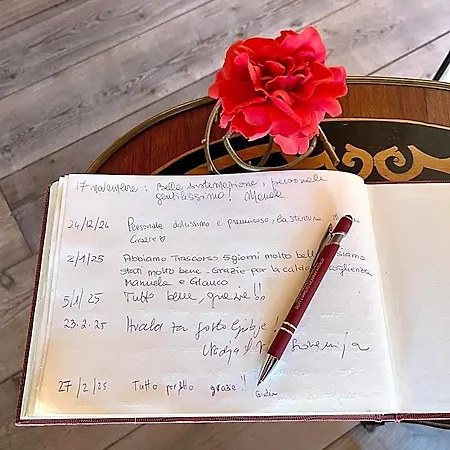 17 novembre : Bella sistemazione, personale
gentilissimo!
24/12/24 Personale dolcissimo e premuroso, la struttura
Grazie
2/1/25 Abbiamo Trascorso 5 giorni molto belli siamo
stati molto bene. Grazie per la calda accoglienza
Manuela e Glauco
5/1/25 Tutto bene, grazie!!
23.2.25 Hvala za gostoljubje!
Nadja
27/2/25 Tutto perfetto grazie!!